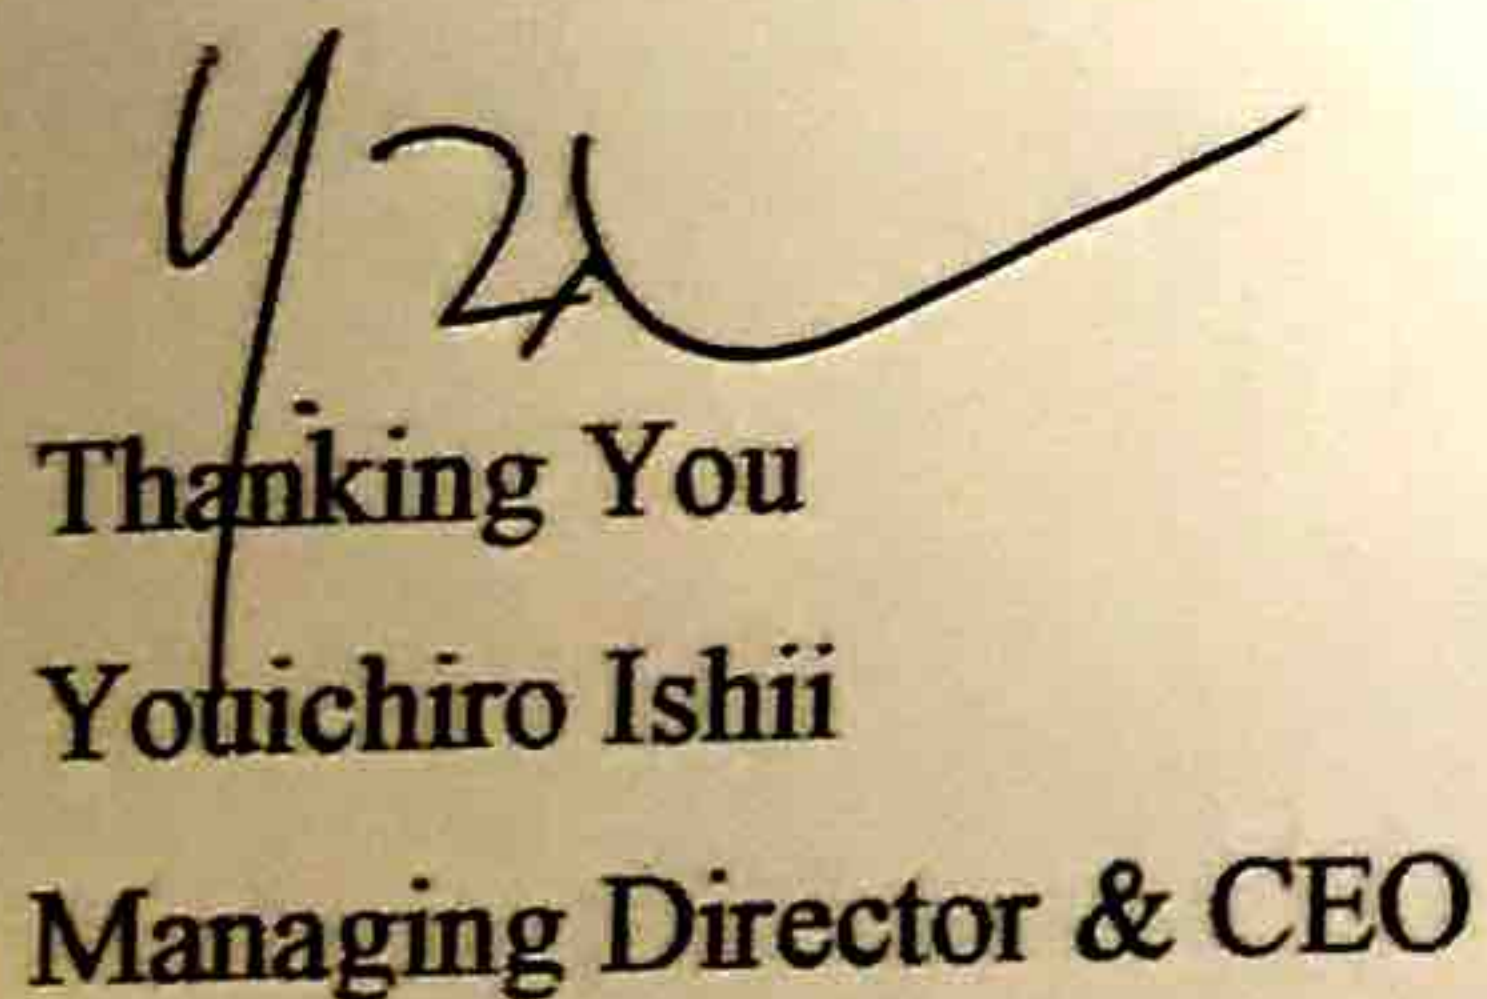 Thanking You
Youichiro Ishii
Managing Director & CEO